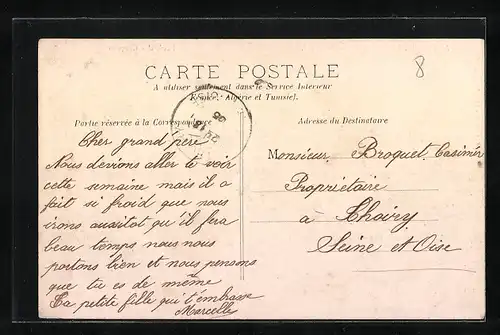 8
CARTE POSTALE
A utiliser seulement dans le Service Intérieur
(France, Algérie et Tunisie).
Partie réservée à la Correspondance
Adresse du Destinataire
Cher grand père
Nous devions aller te voir
cette semaine mais il a
fait si froid que nous
irons aussitot qu'il fera
beau temps nous nous
portons bien et nous pensons
que tu es de même
Ta petite fille qui t'embrasse
Marcelle
Monsieur Broquet Casimir
Propriétaire
a Thoiry
Seine et Oise